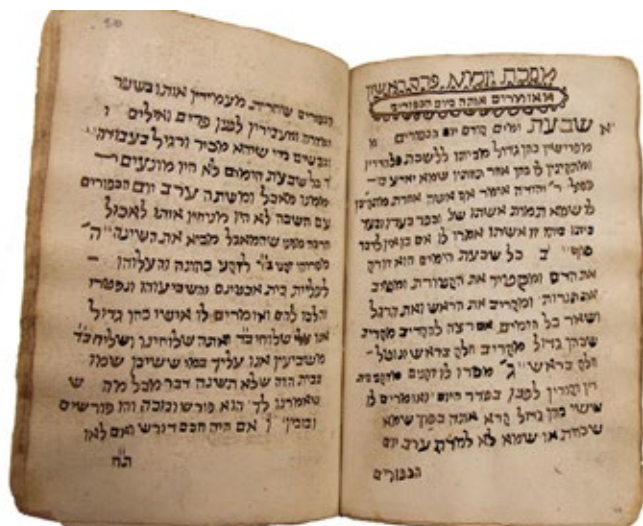 מסכת יומא פרק ראשון
ואומרים אותה ביום הכפורים
א שבעת ימים קודם יום הכפורים מ
מפרישין כהן גדול מביתו ללשכת פלהדרין
ומתקינין לו כהן אחר תחתיו שמא יארע בו
פסול ר' יהודה אומר אף אשה אחרת מתקינין
לו שמא תמות אשתו של וכפר בעדו ובעד
ביתו ביתו זו אשתו אמרו לו אם כן אין לדבר
סוף ב כל שבעת הימים הוא זורק
את הדם ומקטיר את הקטורת ומטיב
את הנרות ומקריב את הראש ואת הרגל
ושאר כל הימים אם רצה להקריב מקריב
שכהן גדול מקריב חלק בראש ונוטל
חלק בראש ג' מסרו לו זקנים מזקני בית
דין וקורין לפניו בסדר היום ואומרים לו
אישי כהן גדול קרא אתה בפיך שמא
שכחת או שמא לא למדת ערב יום
הכפורים
20
הכפורים שחרית מעמידין אותו בשער
המזרח ומעבירין לפניו פרים ואילים ו
וכבשים כדי שיהא מכיר ורגיל בעבודה
ד כל שבעת הימים לא היו מונעים
ממנו מאכל ומשתה ערב יום הכפורים
עם חשכה לא היו מניחין אותו לאכול
הרבה מפני שהמאכל מביא את השינה ה
מסרוהו זקני ב"ד לזקני כהונה והעלוהו
לעליית בית אבטינס והשביעוהו ונפטרו
והלכו להם ואומרים לו אישי כהן גדול
אנו שלוחי ב"ד ואתה שלוחינו ושליח ב"ד
משביעין אנו עליך במי ששיכן שמו
בבית הזה שלא תשנה דבר מכל מה ש
שאמרנו לך הוא פורש ובוכה והן פורשים
ובוכין ו אם היה חכם דורש ואם לאו
תח